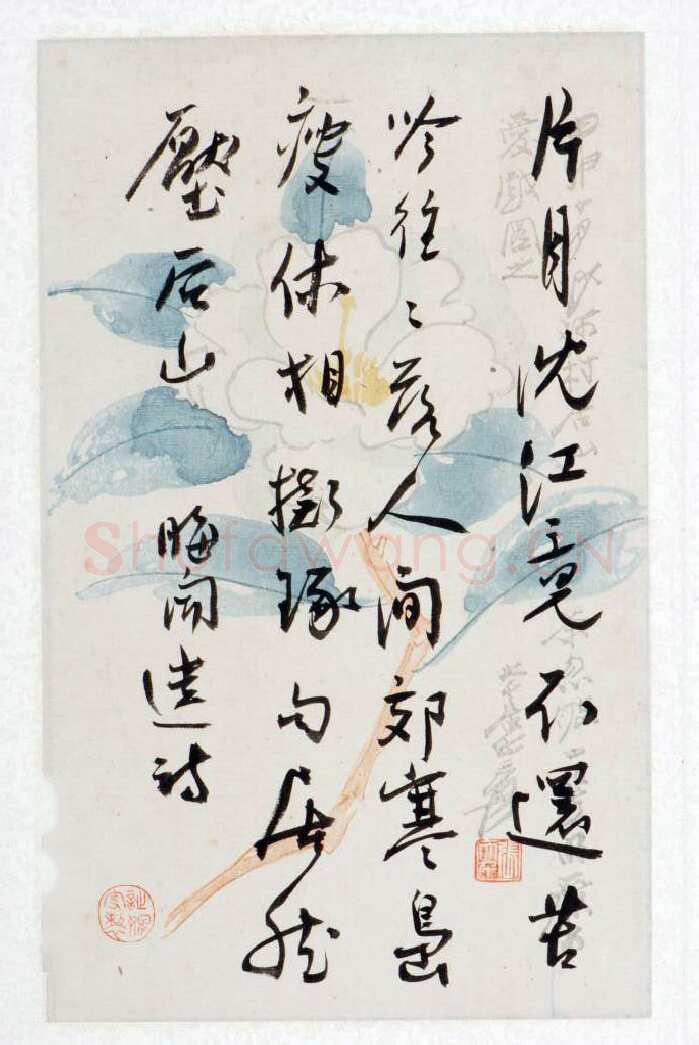 片月沈江竟不還苦
吟往々落人間郊寒島
瘦休相擬琢句居然
壓后山 晦聞遺詩
Shufawang.CN